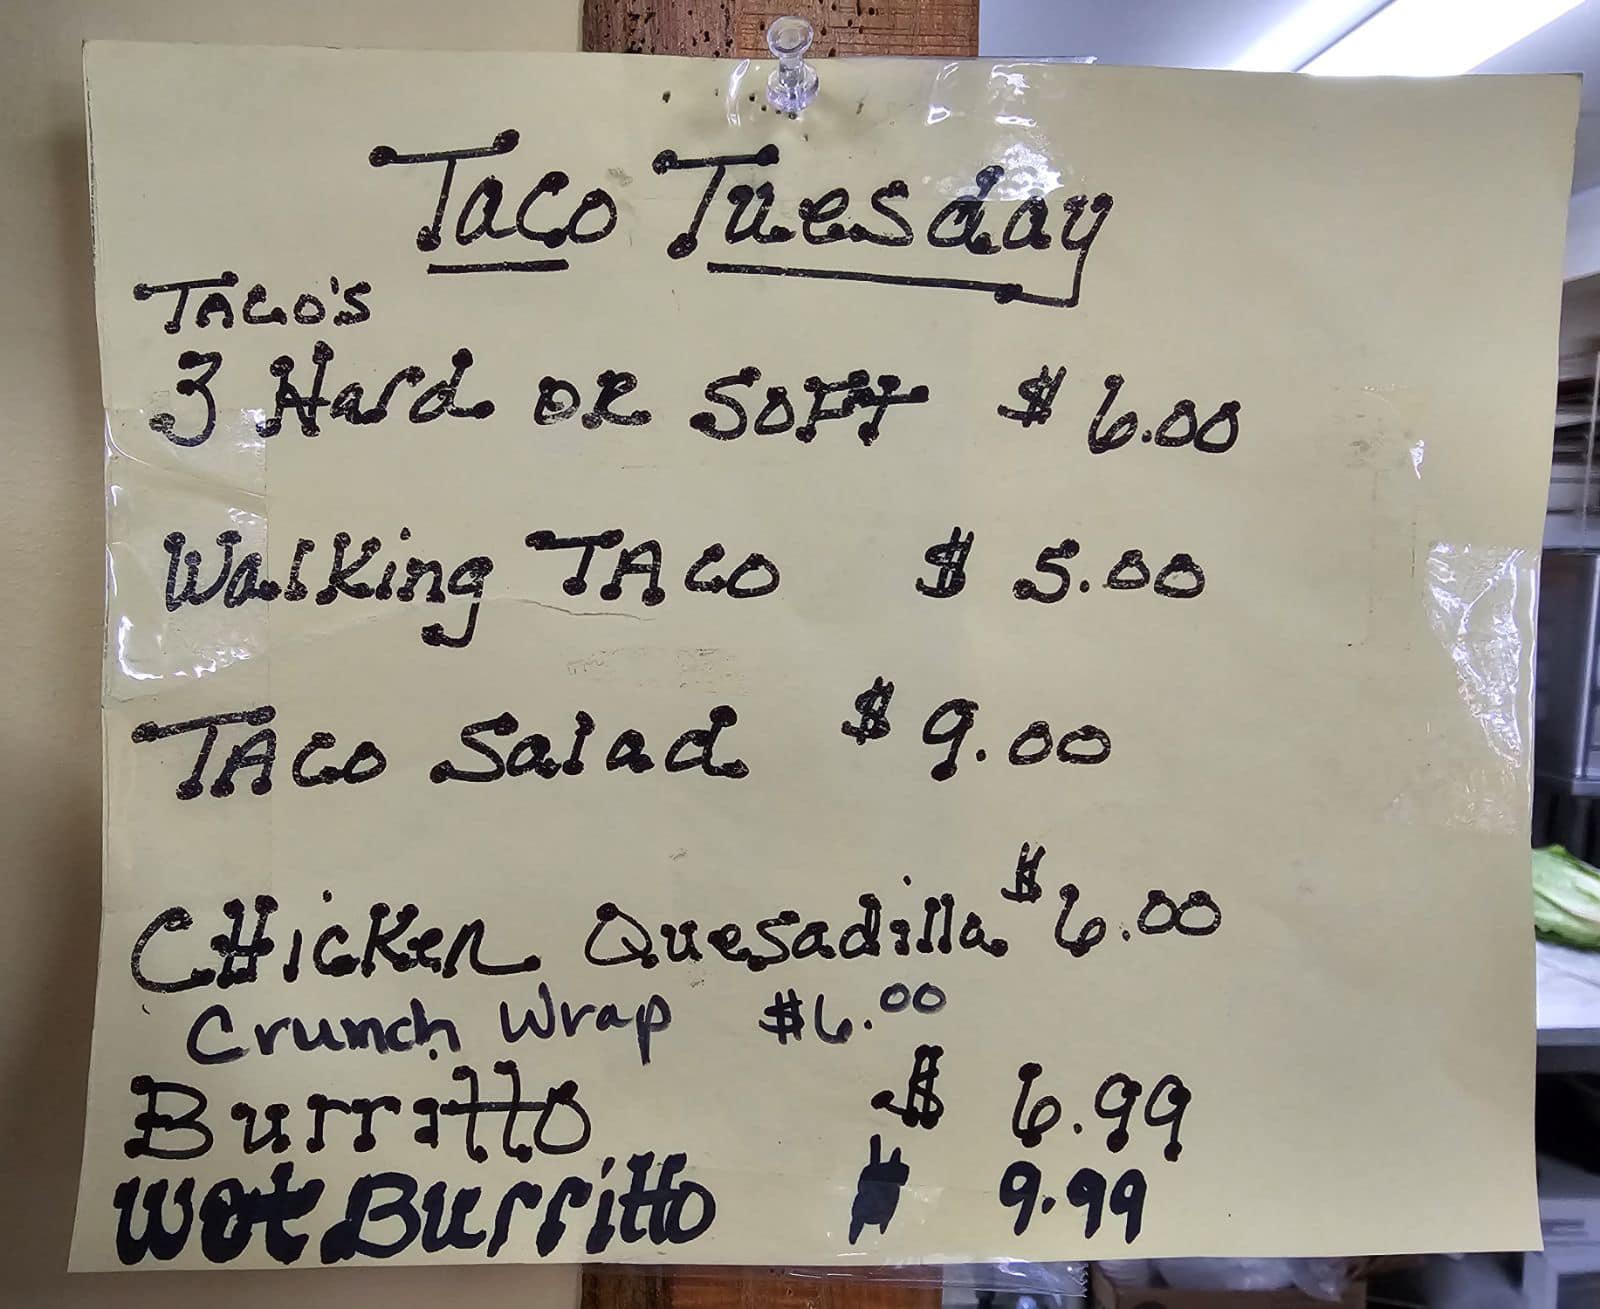 Taco Tuesday
TACO'S
3 Hard OR SOFT $ 6.00
Walking TACO $ 5.00
TACO Salad $ 9.00
CHicKen Quesadilla $ 6.00
Crunch Wrap $6.00
Burritto $ 6.99
Wet Burritto $ 9.99